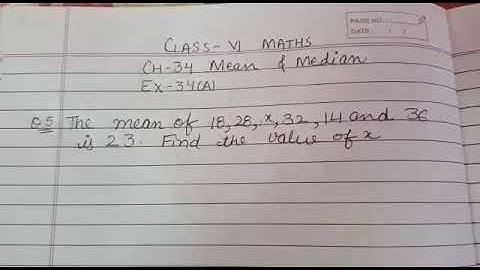 PAGE NO.:
DATE : / /
CLASS-VI MATHS
CH-34 Mean & Median
EX-34(A)
Q5 The mean of 18, 28, x, 32, 14 and 36
is 23. Find the value of x